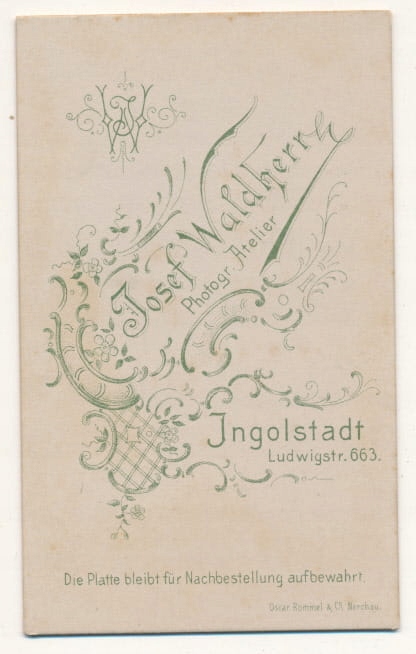 JW
Josef Waldherr
Photogr. Atelier
Ingolstadt
Ludwigstr. 663.
Die Platte bleibt für Nachbestellung aufbewahrt.
Oscar Rommel & Co. Nerchau.